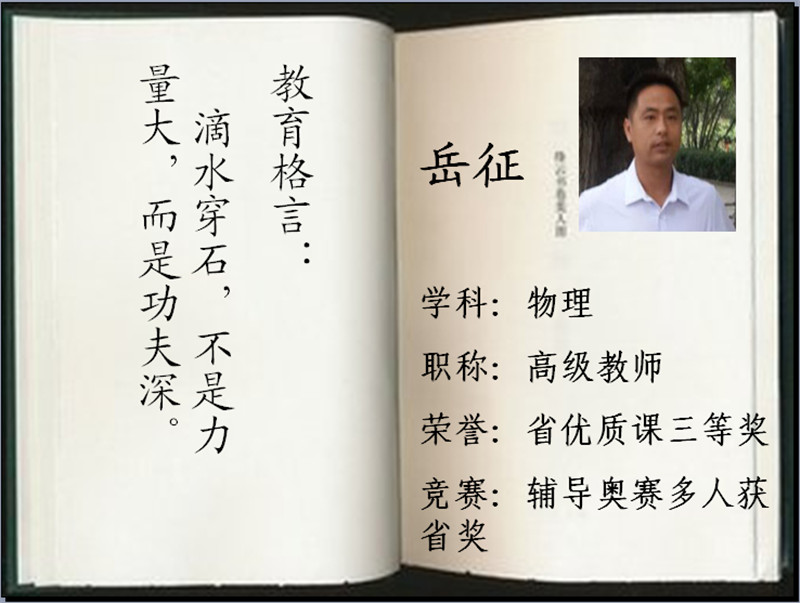 教育格言：
滴水穿石，不是力
量大，而是功夫深。
岳征
学科：物理
职称：高级教师
荣誉：省优质课三等奖
竞赛：辅导奥赛多人获
省奖